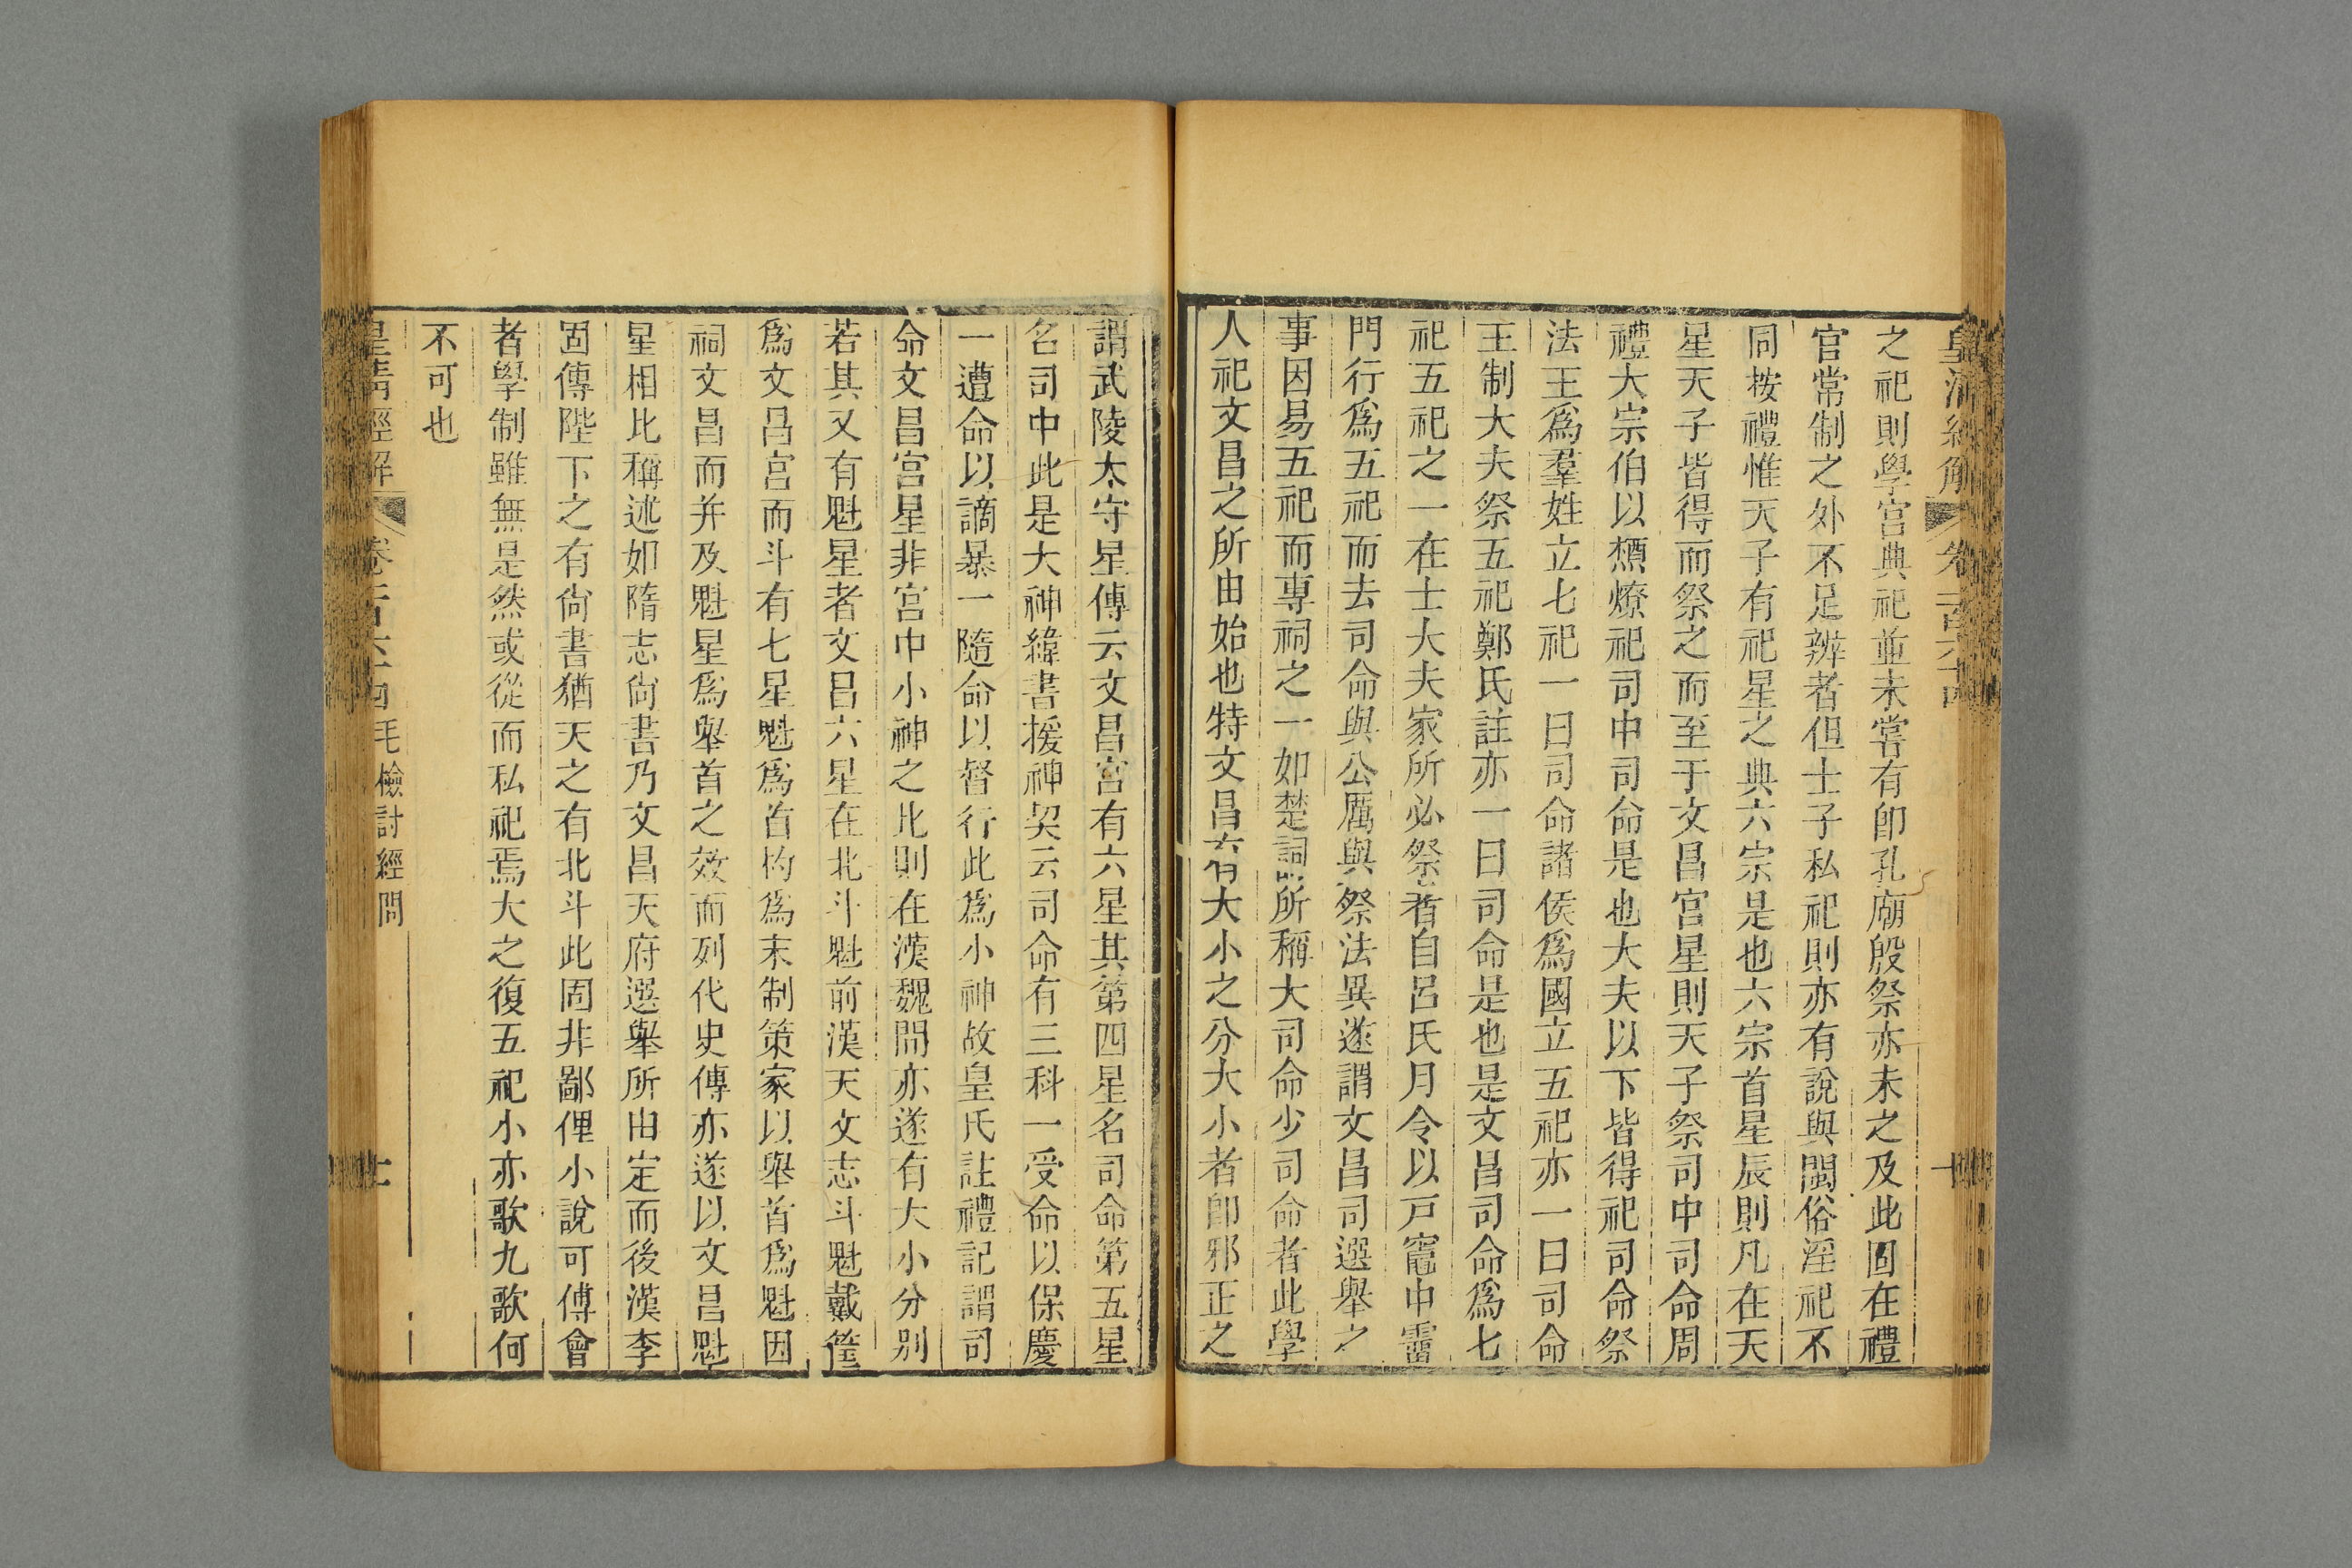 皇清經解 卷一百六十四 十
之祀則學宮典祀並未嘗有卽孔廟殷祭亦未之及此固在禮
官常制之外不足辨者但士子私祀則亦有說與閩俗淫祀不
同按禮惟天子有祀星之典六宗是也六宗首星辰則凡在天
星天子皆得而祭之而至于文昌宮星則天子祭司中司命周
禮大宗伯以槱燎祀司中司命是也大夫以下皆得祀司命祭
法王爲羣姓立七祀一曰司命諸侯爲國立五祀亦一曰司命
王制大夫祭五祀鄭氏註亦一曰司命是也是文昌司命爲七
祀五祀之一在士大夫家所必祭者自呂氏月令以戸竈中霤
門行爲五祀而去司命與公厲與祭法異遂謂文昌司選舉之
事因易五祀而專祠之一如楚詞所稱大司命少司命者此學
人祀文昌之所由始也特文昌有大小之分大小者卽邪正之
謂武陵太守星傳云文昌宮有六星其第四星名司命第五星
名司中此是大神緯書援神契云司命有三科一受命以保慶
一遭命以謫暴一隨命以督行此爲小神故皇氏註禮記謂司
命文昌宮星非宮中小神之比則在漢魏間亦遂有大小分别
若其又有魁星者文昌六星在北斗魁前漢天文志斗魁戴筐
爲文昌宮而斗有七星魁爲首杓爲末制策家以舉首爲魁因
祠文昌而并及魁星爲舉首之效而列代史傳亦遂以文昌魁
星相比稱述如隋志尙書乃文昌天府選舉所由定而後漢李
固傳陛下之有尙書猶天之有北斗此固非鄙俚小說可傅會
者學制雖無是然或從而私祀焉大之復五祀小亦歌九歌何
不可也
皇清經解 卷一百六十四 毛檢討經問 十一